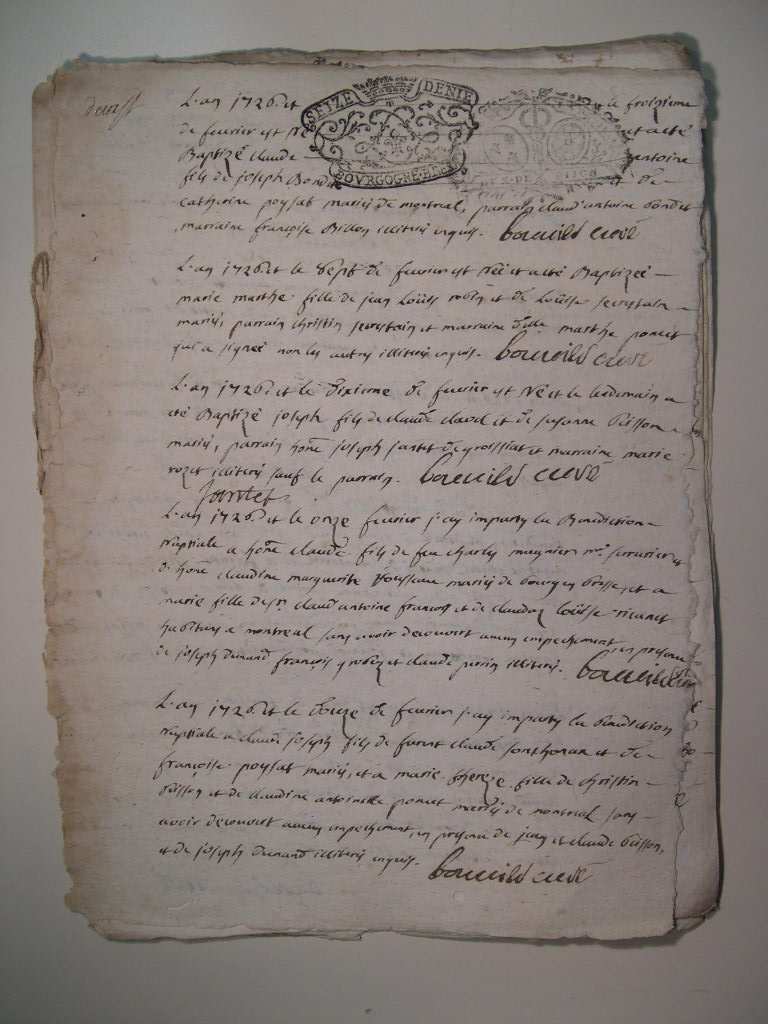 L'an 1726 et SEIZE DENIE le troizieme
de fevrier est et a eté
Baptizé claude antoine
fils de joseph BOVRGOGNE-BRE et de
catherine poysat mariés de montreal, parrain claud antoine
marraine françoise Billon illiterés enquis. curé
L'an 1726 et le sept de fevrier est né et a eté Baptizeé
marie marthe fille de jean Loüis robin et de Loüise secrestain
mariés, parrain christin secrestain et marraine dlle marthe poncet
qui a signeé non les autres illiterés enquis. curé
L'an 1726 et le dixieme de fevrier est né et le lendemain a
eté Baptizé joseph fils de claude et de susanne Buisson
mariés, parrain hone joseph jantet de groissiat et marraine marie
rozet illiterés sauf le parrain. curé
jantet
L'an 1726 et le onze fevrier j'ay imparty la Benediction
nuptiale a hone claude fils de feu charles mugnier me serrurier et
d'hone claudine marguerite mariés de bourg en bresse, et a
marie fille de sr. claud antoine françois et de claudaz Loüise
habitans a montreal sans avoir decouvert aucun empechement, en presence
de joseph dunand françois grobez et claude perrin illiterés.
L'an 1726 et le douze de fevrier j'ay imparty la benediction
nuptiale a claude joseph fils de furent claude sonthonax et de
françoise poysat mariés, et a marie thereze fille de christin
Buisson et de claudine antoinette poncet mariés de montreal sans
avoir decouvert aucun empechement, en presence de jean et claude buisson,
et de joseph dunand illiterés enquis. curé